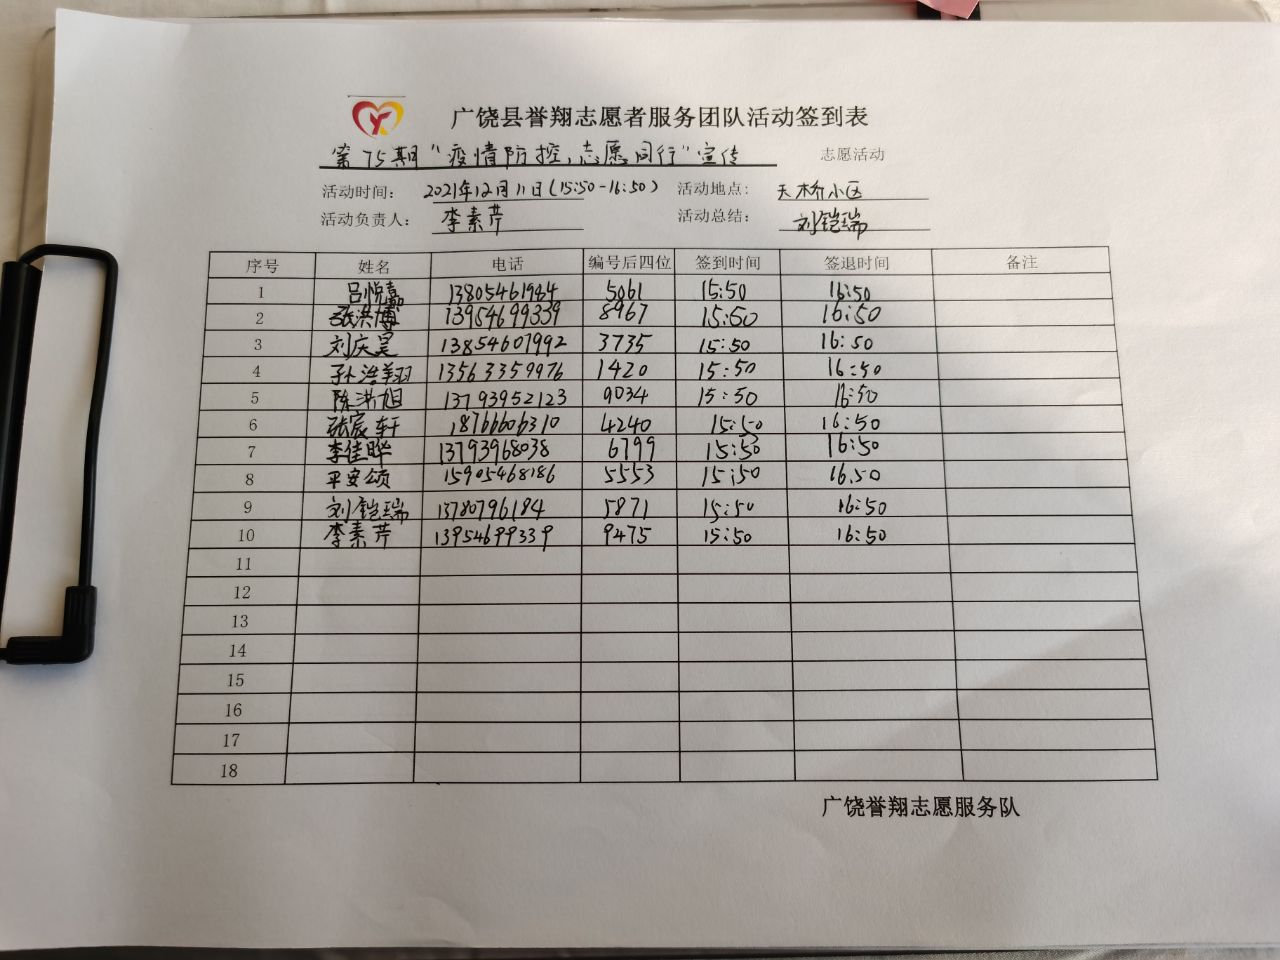 广饶县誉翔志愿者服务团队活动签到表
第75期“疫情防控,志愿同行”宣传 志愿活动
活动时间: 2021年12月11日(15:50-16:50) 活动地点: 天桥小区
活动负责人: 李素芹 活动总结: 刘铠瑞
序号 姓名 电话 编号后四位 签到时间 签退时间 备注
1 吕悦嘉 13805461984 5061 15:50 16:50
2 张洪博 13954699339 8967 15:50 16:50
3 刘庆昊 13854607992 3735 15:50 16:50
4 孙浩翔 13563359976 1420 15:50 16:50
5 陈洪旭 13793952123 9034 15:50 16:50
6 张宸轩 18766606310 4240 15:50 16:50
7 李佳晔 13793968038 6799 15:50 16:50
8 平安颂 15905468186 5553 15:50 16.50
9 刘铠瑞 13780796184 5871 15:50 16:50
10 李素芹 13954699339 9475 15:50 16:50
11
12
13
14
15
16
17
18
广饶誉翔志愿服务队